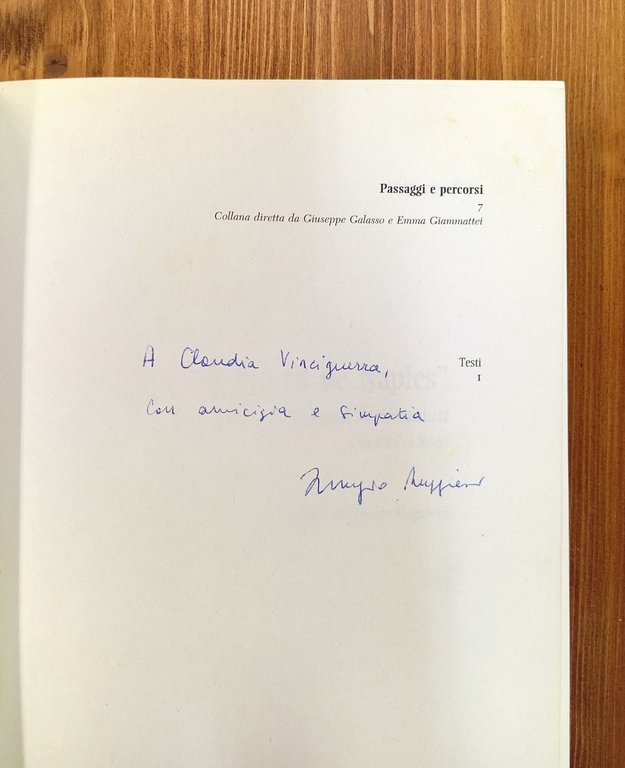 Passaggi e percorsi
7
Collana diretta da Giuseppe Galasso e Emma Giammattei
A Claudia Vinciguerra,
Testi
1
con amicizia e simpatia
Ruggiero